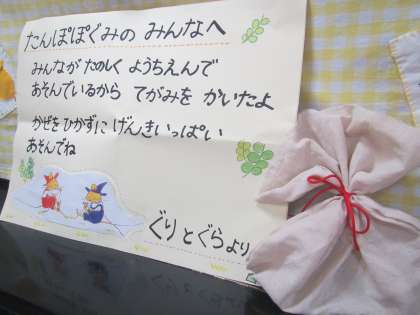 たんぽぽぐみの みんなへ
みんなが たのしく ようちえんで
あそんでいるから てがみを かいたよ
かぜをひかずに げんきいっぱい
あそんでね
ぐりとぐらより